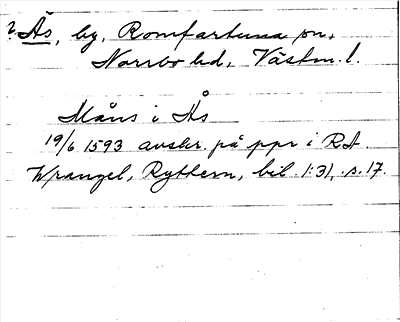 ? Ås, by, Romfartuna sn,
Norrbo hd, Västm. l.
Måns i Ås
19/6 1593 avskr. på ppr i RA.
Wrangel, Ryttern, bil. 1:31, s. 17.